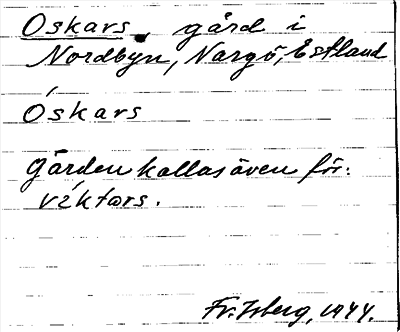 Oskars, gård i
Nordbyn, Nargö, Estland
Óskars
Gården kallas även för:
víktars.
Fr. Isberg, 1944.